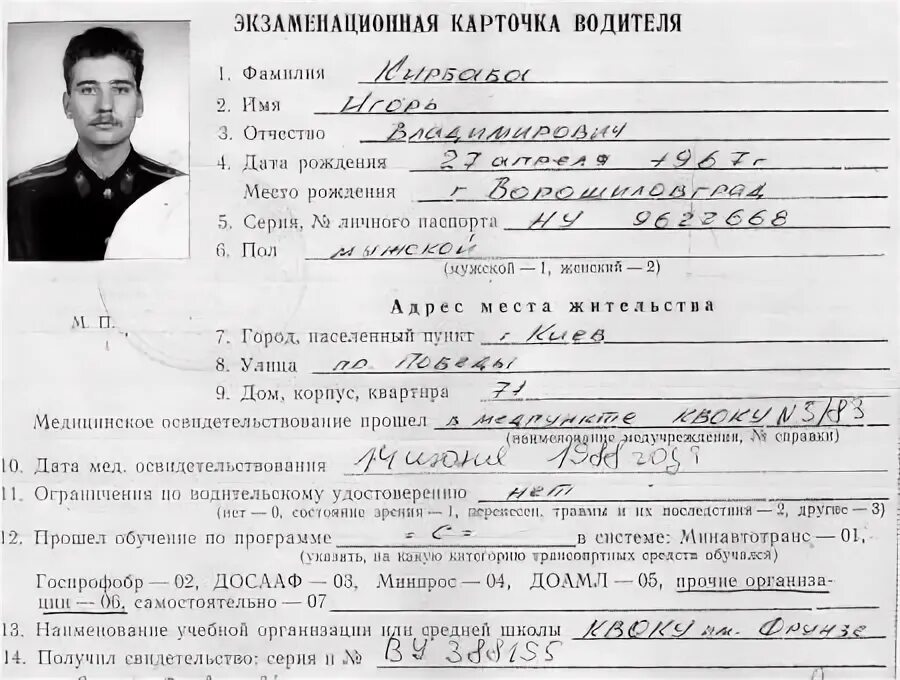 ЭКЗАМЕНАЦИОННАЯ КАРТОЧКА ВОДИТЕЛЯ
1. Фамилия Кирбаба
2. Имя Игорь
3. Отчество Владимирович
4. Дата рождения 27 апреля 1967 г
Место рождения г Ворошиловград
5. Серия, № личного паспорта НУ 9622668
6. Пол мужской
(мужской — 1, женский — 2)
Адрес места жительства
М. П.
7. Город, населенный пункт г Киев
8. Улица пр Победы
9. Дом, корпус, квартира 71
Медицинское освидетельствование прошел в медпункте КВОКУ N3/83
(наименование медучреждения, № справки)
10. Дата мед. освидетельствования 14 июня 1988 года
11. Ограничения по водительскому удостоверению нет
(нет — 0, состояние зрения — 1, перенесен. травмы и их последствия — 2, другое — 3)
12. Прошел обучение по программе = С = в системе: Минавтотранс — 01,
(указать, на какую категорию транспортных средств обучался)
Госпрофобр — 02, ДОСААФ — 03, Минпрос — 04, ДОАМЛ — 05, прочие организа-
ции — 06, самостоятельно — 07
13. Наименование учебной организации или средней школы КВОКУ им. Фрунзе
14. Получил свидетельство: серия и № ВУ 388155